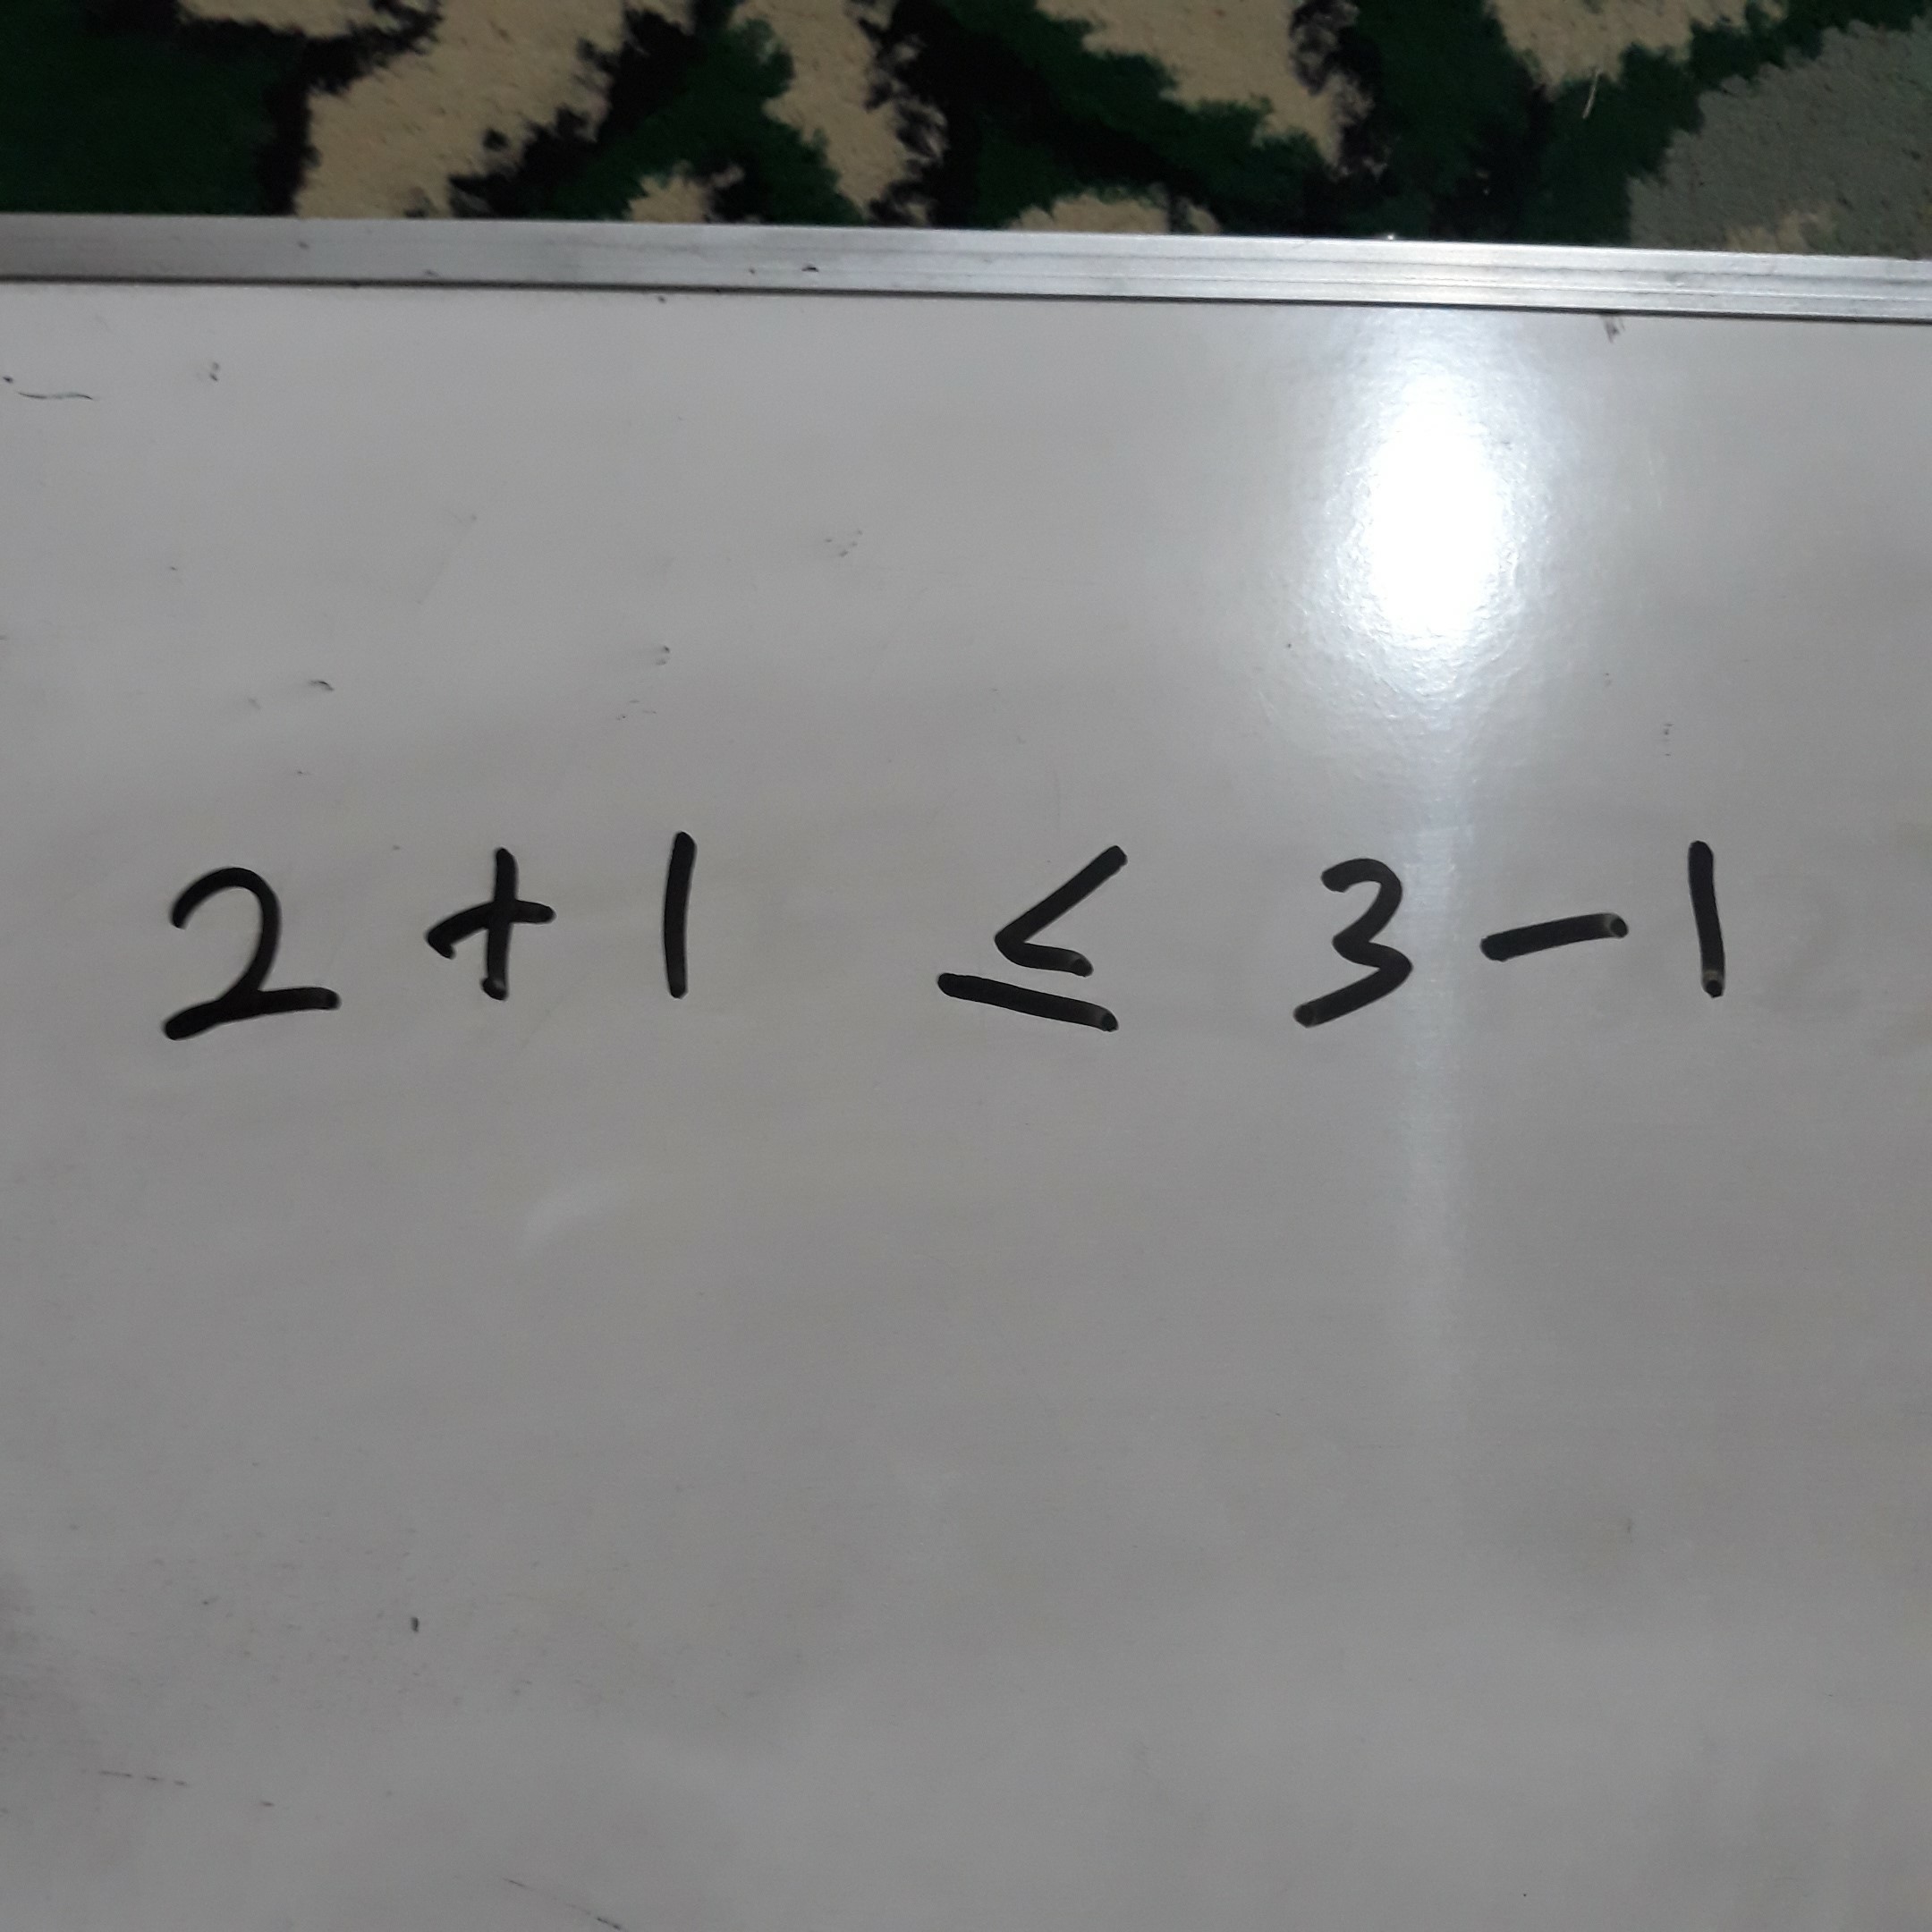 2 + 1 ≤ 3 - 1